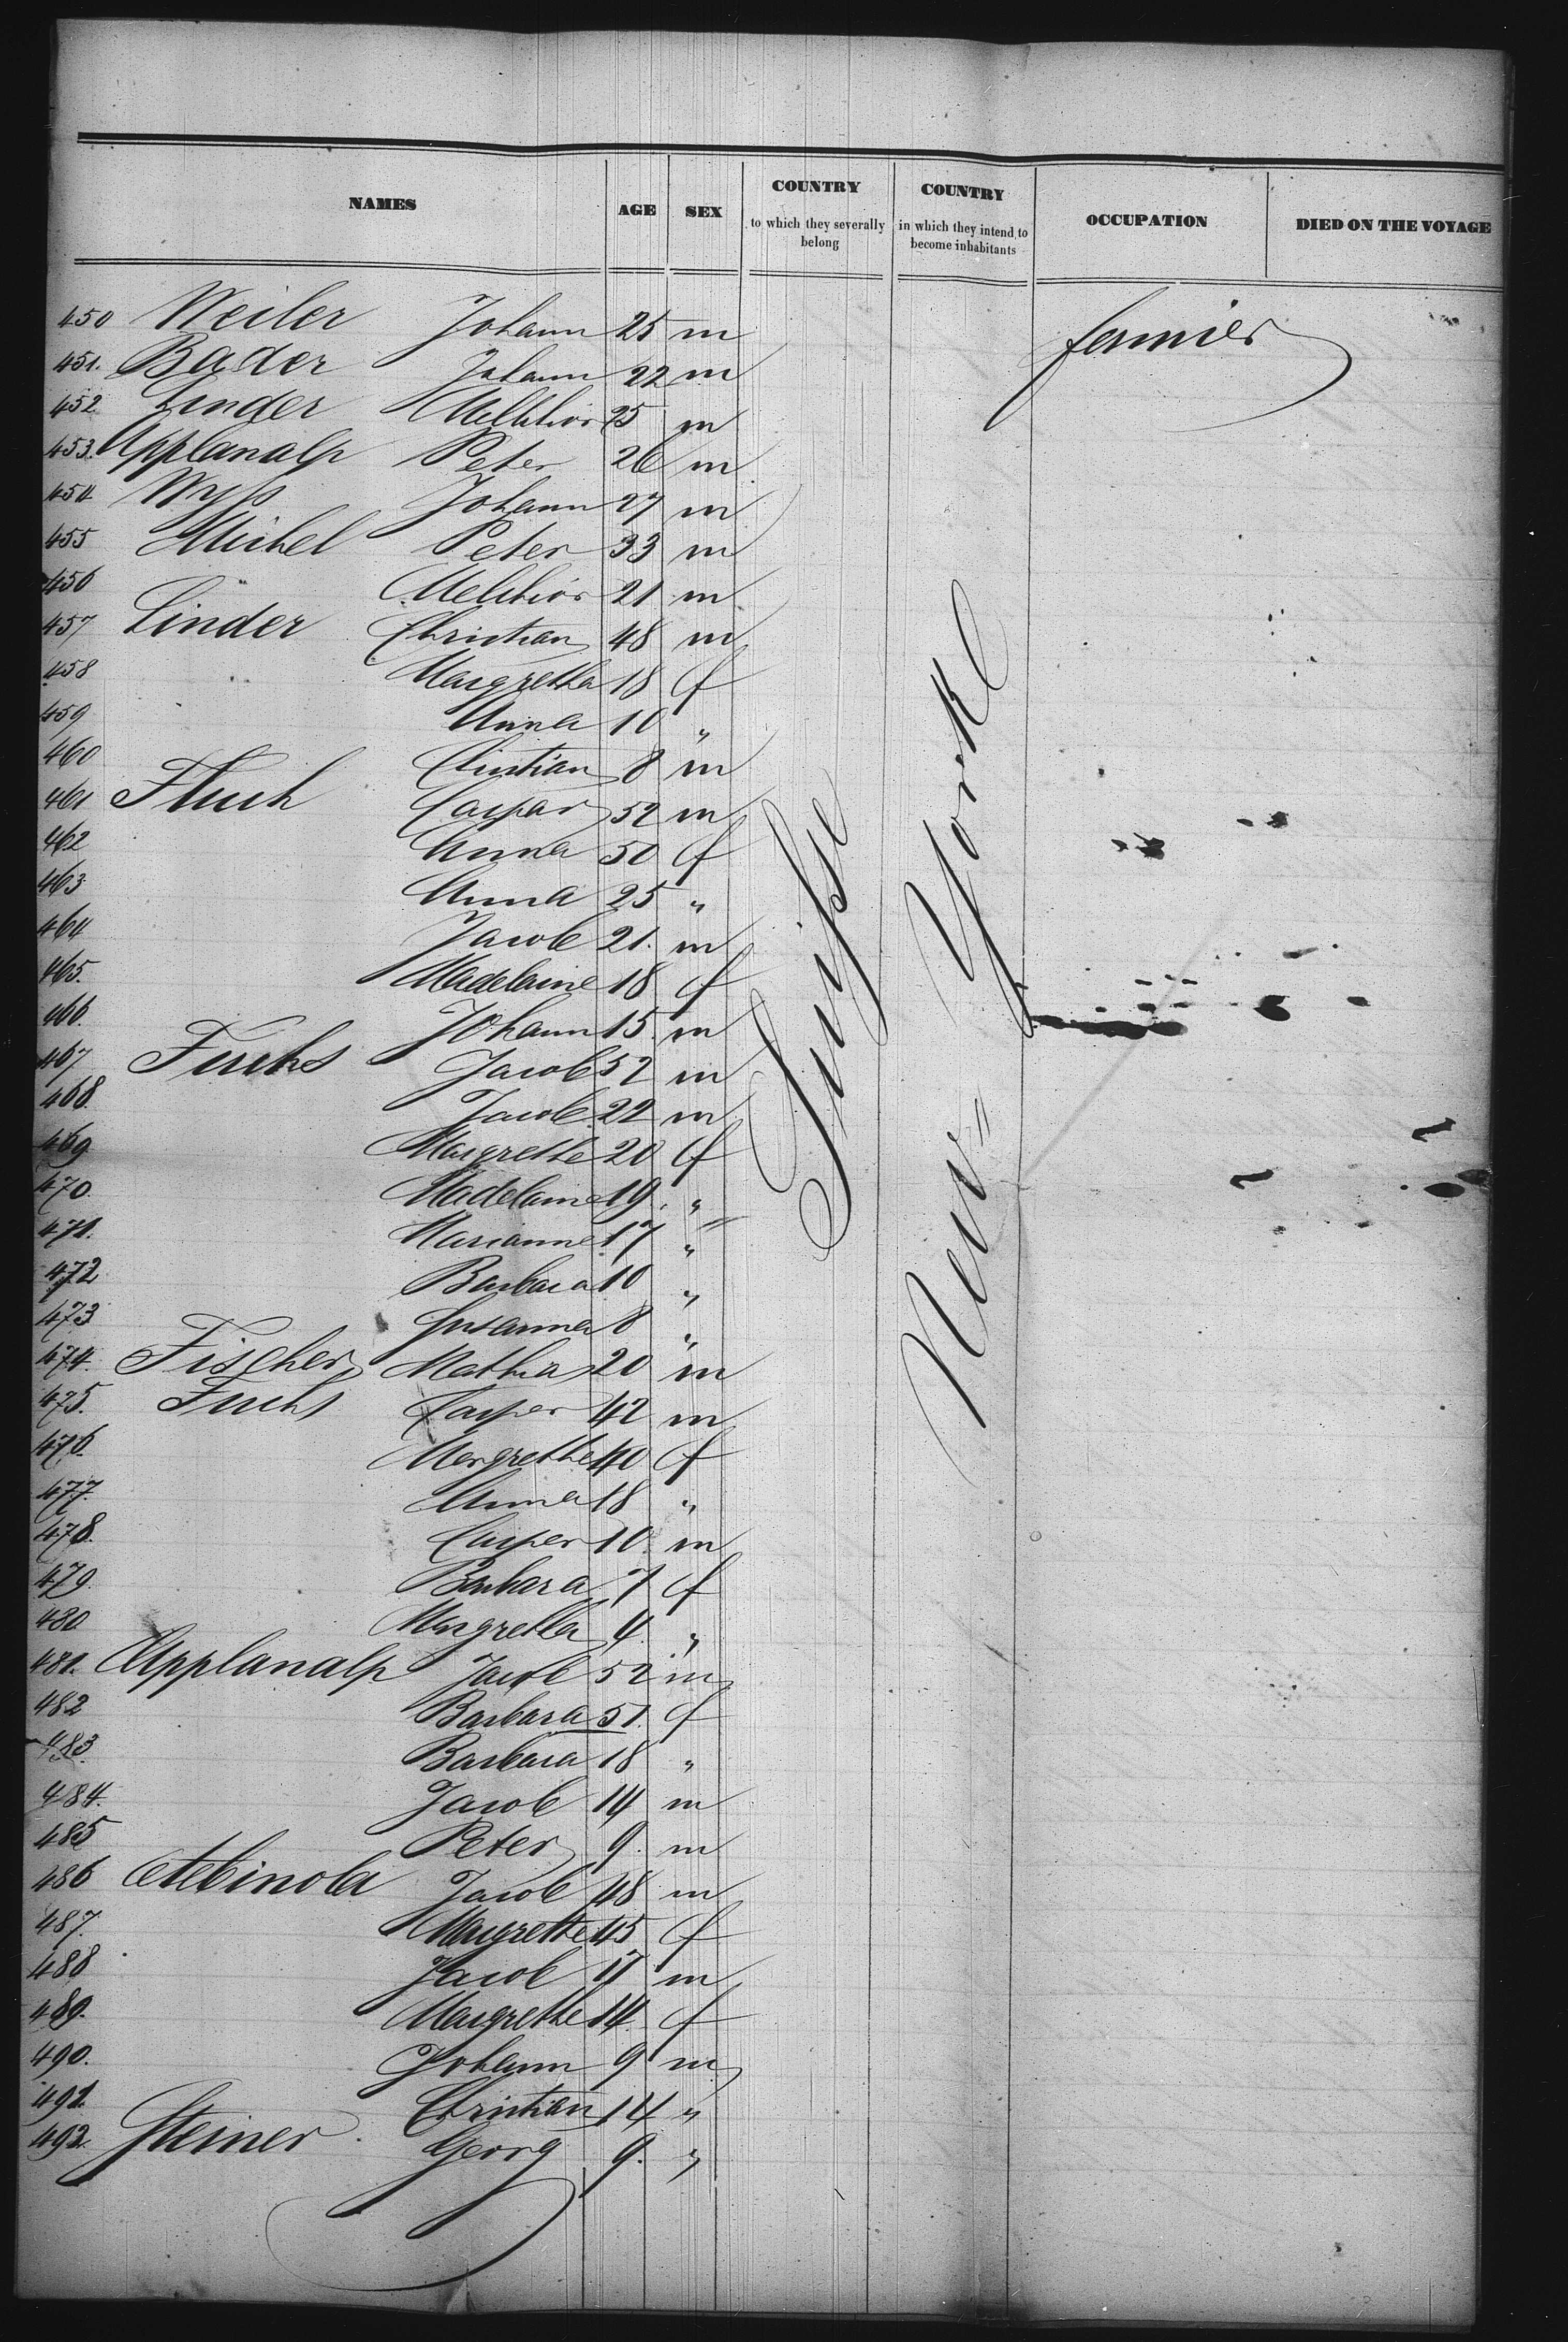 NAMES AGE SEX COUNTRY to which they severally belong COUNTRY in which they intend to become inhabitants OCCUPATION DIED ON THE VOYAGE
450 Weiler Johann 25 m farmier
451. Bader Johann 22 m
452 Linder Melchior 25 m
453. Applanalp Peter 26 m
454 Wyss Johann 27 m
455 Michel Peter 33 m
456 " Melchior 21 m
457 Linder Christian 48 m
458 Margretha 18 f
459 Anna 10 "
460 Christian 8 m
461 Fluch Caspar 52 m
462 Anna 50 f
463 Anna 25 "
464 Jacob 21. m
465. Madelaine 18 f
466. Johann 15. m
467 Fuchs Jacob 52 m
468. Jacob 22 m
469 Margrethe 20 f
470. Madelaine 19. "
471. Marianne 17 "
472 Barbara 10 "
473 Susanna 8 "
474. Fischer Mathias 20 m
475. Fuchs Casper 42 m
476. Margrethe 40 f
477. Anna 18 "
478. Casper 10. m
479. Barbara 7 f
480 Margretha 4. "
481. Applanalp Jacob 52 m
482 Barbara 51. f
483. Barbara 18 "
484. Jacob 14 m
485 Peter 9. m
486 Aebinola Jacob 48 m
487. Margrethe 45 f
488 Jacob 17 m
489. Margrethe 14. f
490. Johann 9 m
491. Christian 14 "
492. Steiner Georg 9. "
Suisse
New-Yorke